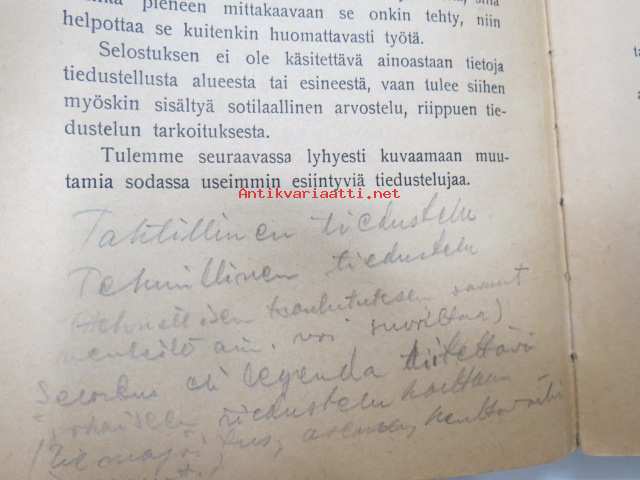 pieneen mittakaavaan se onkin tehty, niin
helpottaa se kuitenkin huomattavasti työtä.
Selostuksen ei ole käsitettävä ainoastaan tietoja
tiedustellusta alueesta tai esineestä, vaan tulee siihen
myöskin sisältyä sotilaallinen arvostelu, riippuen tie-
dustelun tarkoituksesta.
Tulemme seuraavassa lyhyesti kuvaamaan muu-
tamia sodassa useimmin esiintyviä tiedustelujaa.
Antikvariaatti.net
Taktillinen tiedustelu
Teknillinen tiedustelu
(teknillisen koulutuksen saanut
henkilö voi suorittaa)
Selostus eli legenda liitettävä
jokaiseen tiedustelu karttaan